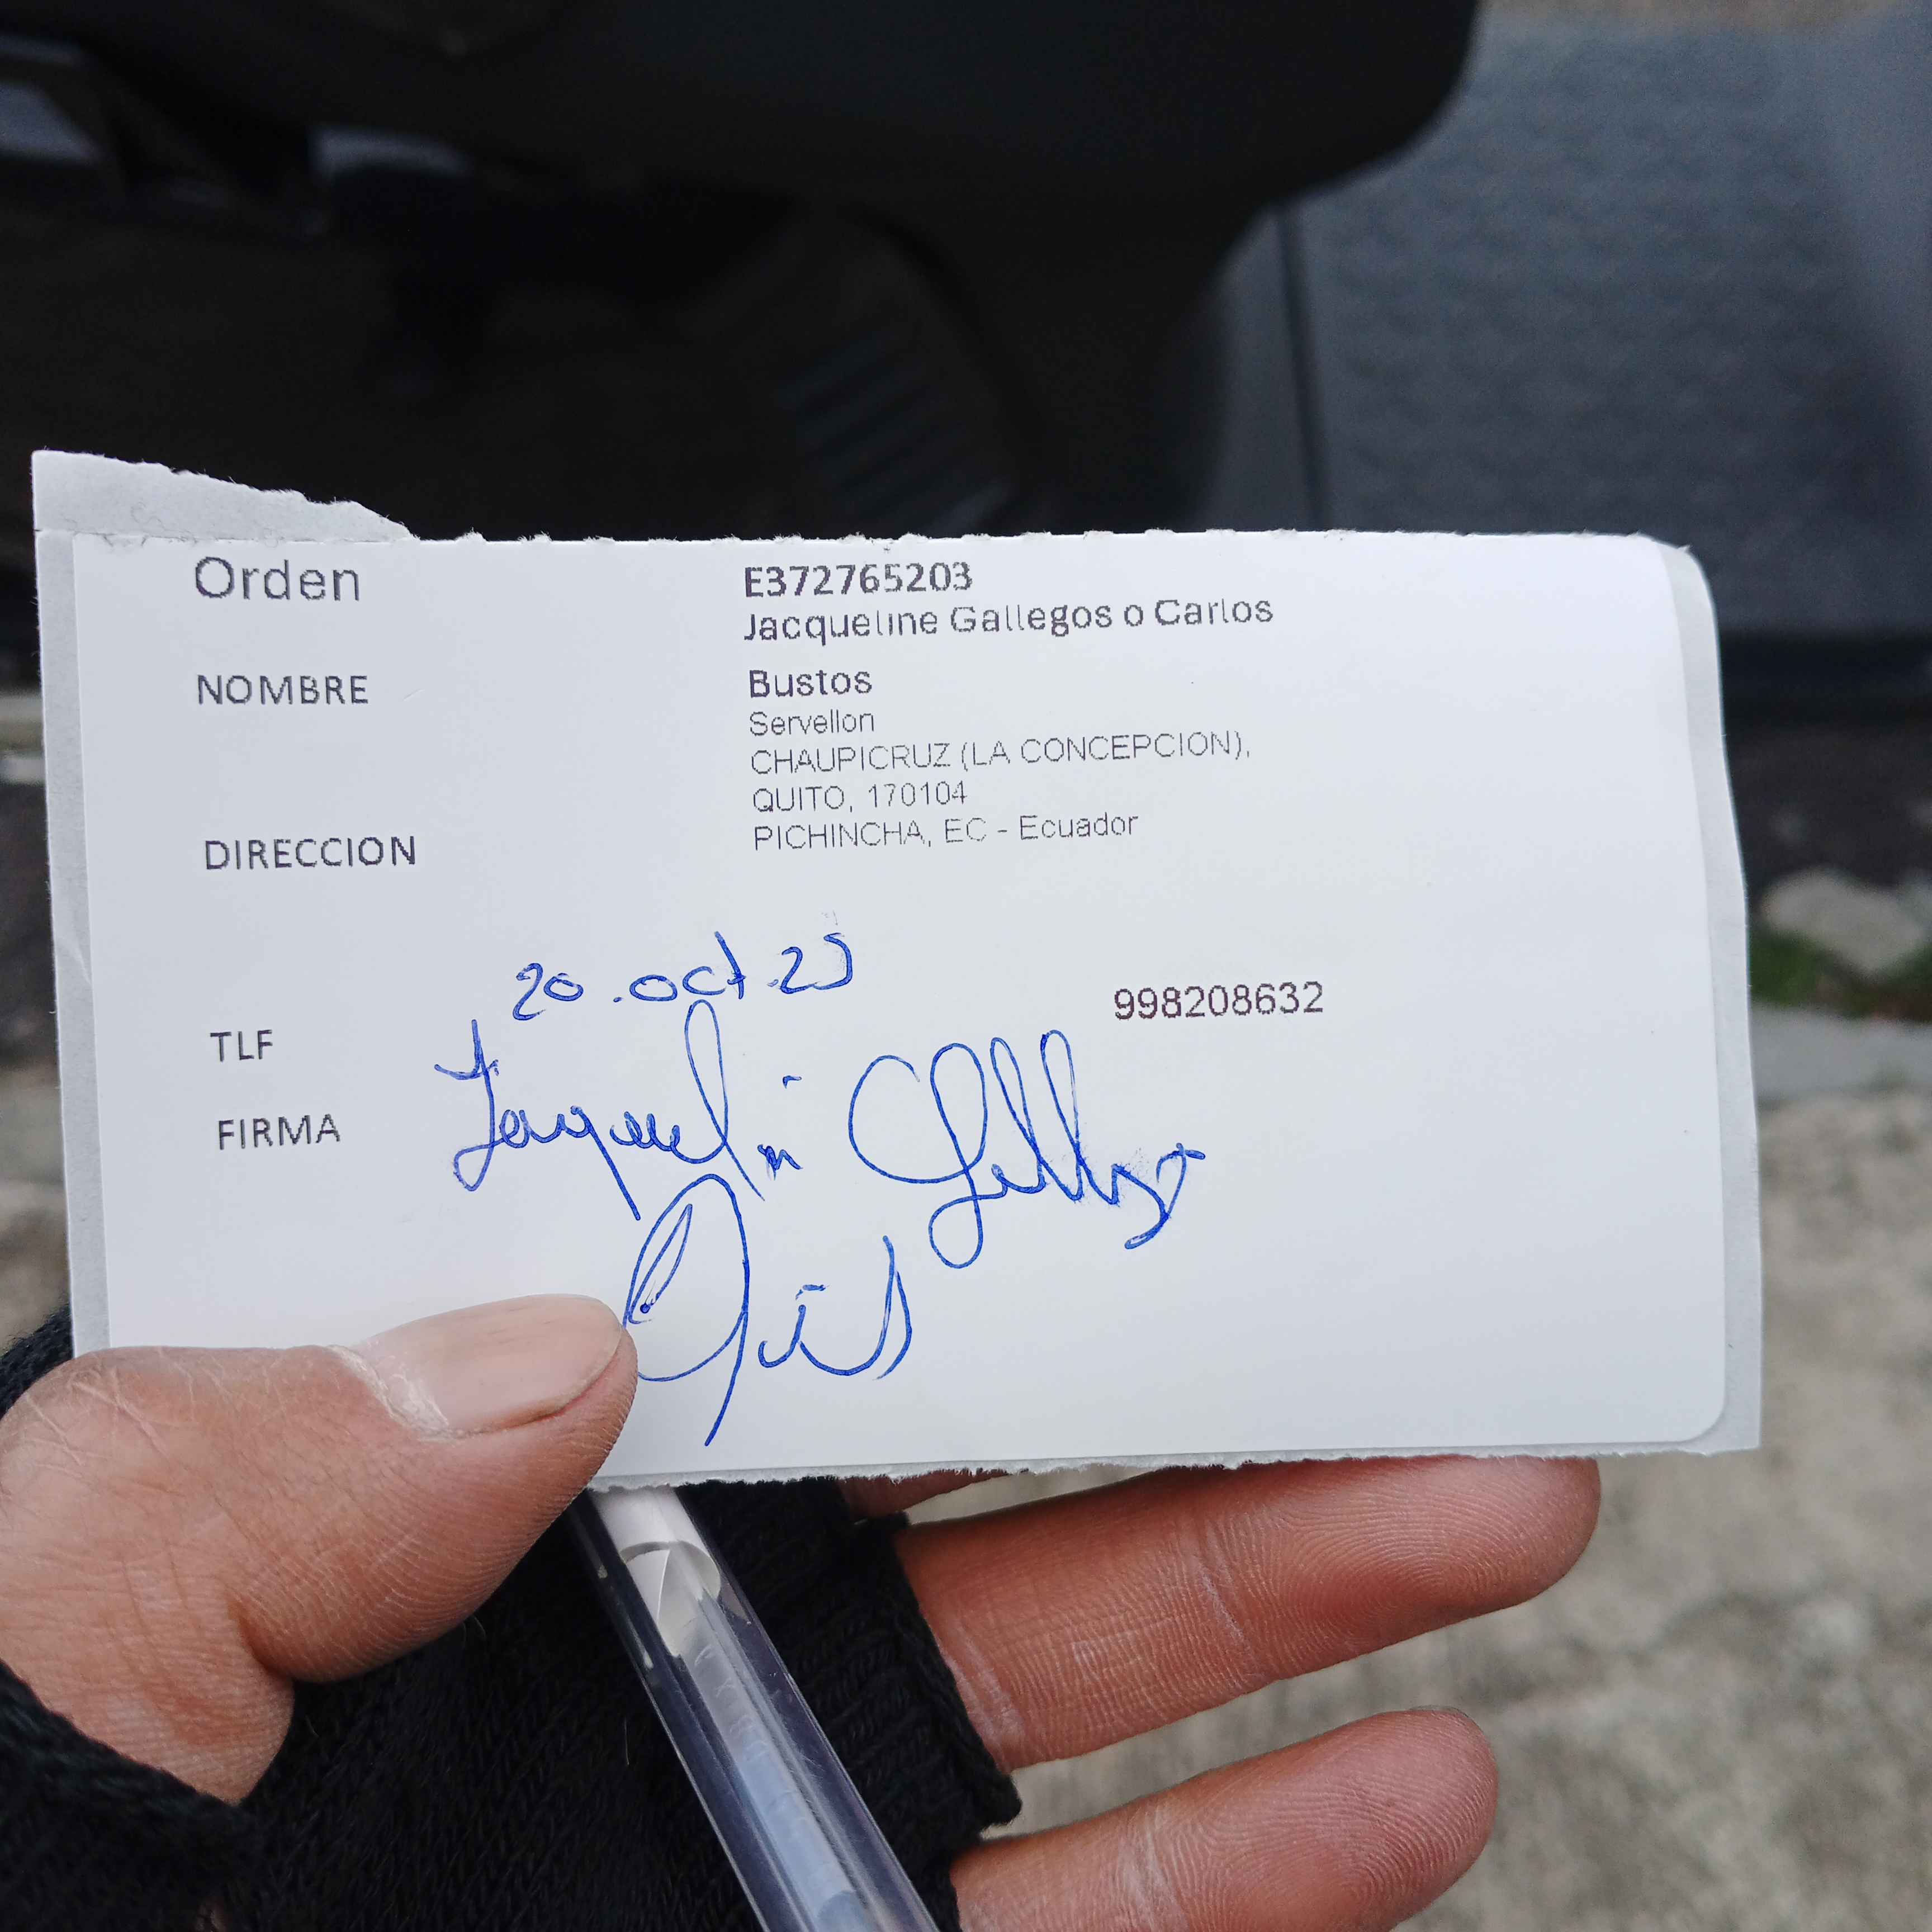 Orden E372765203
Jacqueline Gallegos o Carlos
NOMBRE Bustos
Servellon
CHAUPICRUZ (LA CONCEPCION),
QUITO, 170104
DIRECCION PICHINCHA, EC - Ecuador
20.oct.25
TLF 998208632
FIRMA Jaquelin Gallegos